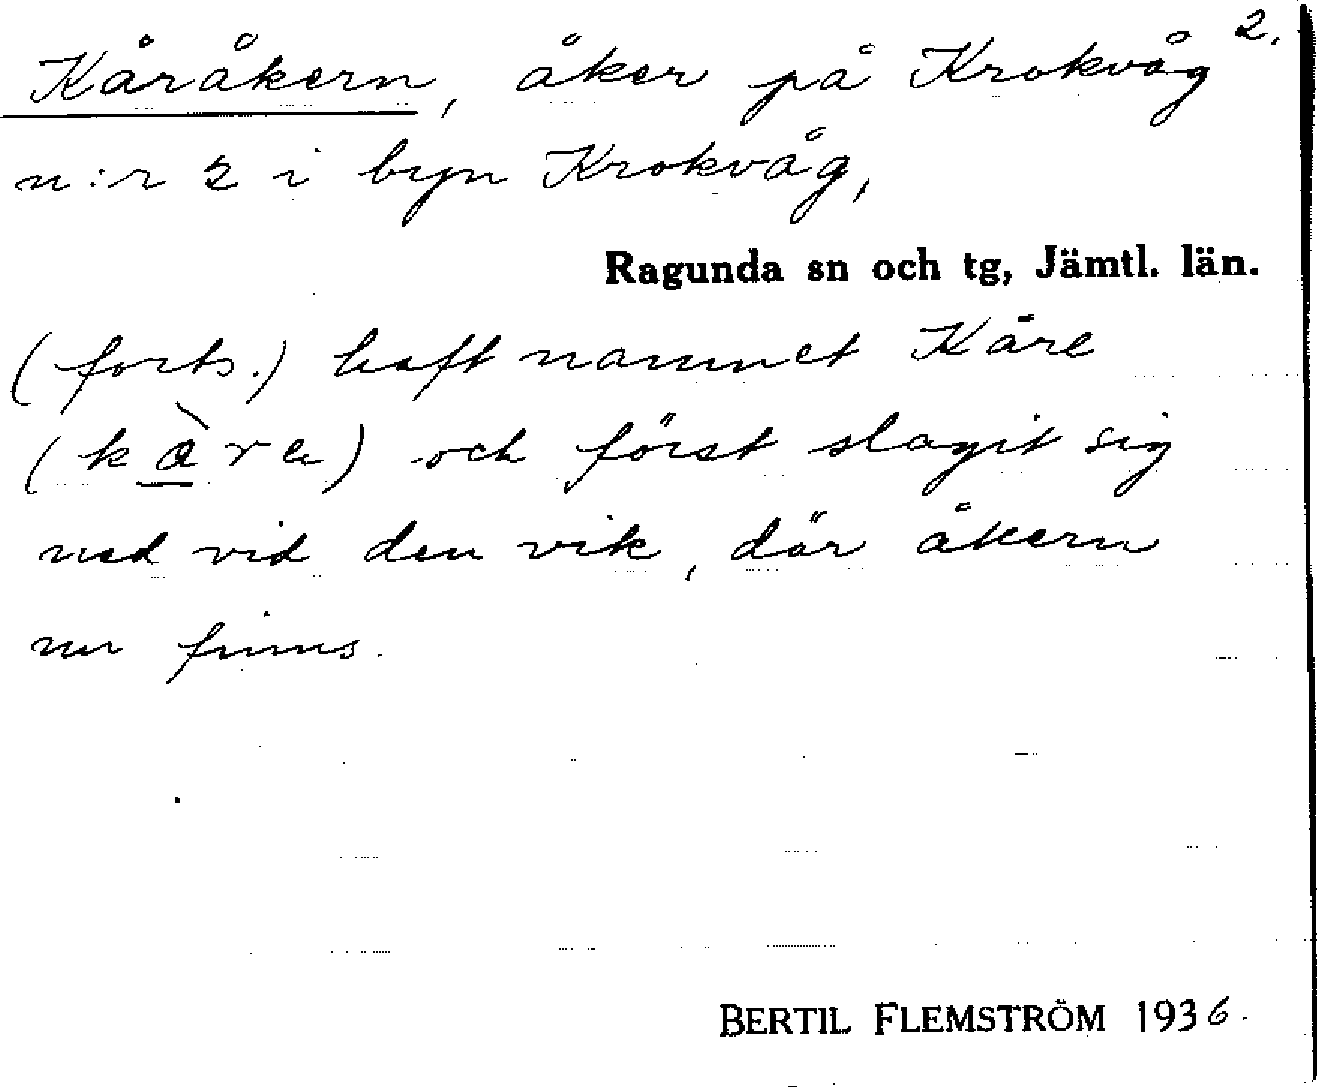 2.
Kåråkern, åker på Krokvåg
n:r 2 i byn Krokvåg,
Ragunda sn och tg, Jämtl. län.
(forts.) haft namnet Kåre
och först slagit sig
ned vid den vik, där åkern
nu finns.
BERTIL FLEMSTRÖM 1936.